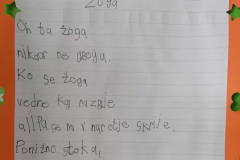 Žoga
Oh ta žoga,
nikdar ne uboga.
Ko se žoga
vedno kaj razbije
ali pa se mi v narotje skrije.
Ponižno stoka,